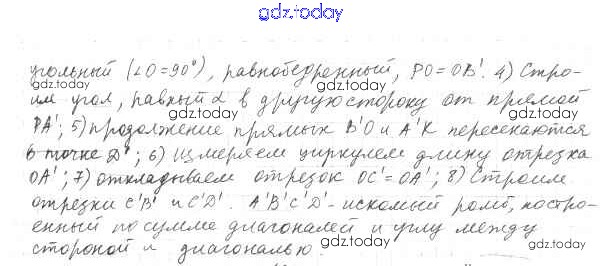 gdz.today
угольный (∠O=90°), равнобедренный, PO=OB'. 4) Стро-
им угол, равный α в другую сторону от прямой
PA'; 5) продолжение прямых B'O и A'K пересекаются
в точке D'; 6) Измеряем циркулем длину отрезка
OA'; 7) откладываем отрезок OC'=OA'; 8) Строим
отрезки C'B' и C'D'. A'B'C'D'- искомый ромб, постро-
енный по сумме диагоналей и углу между
стороной и диагональю.
gdz.today
gdz.today
gdz.today
gdz.today
gdz.today
gdz.today
gdz.today